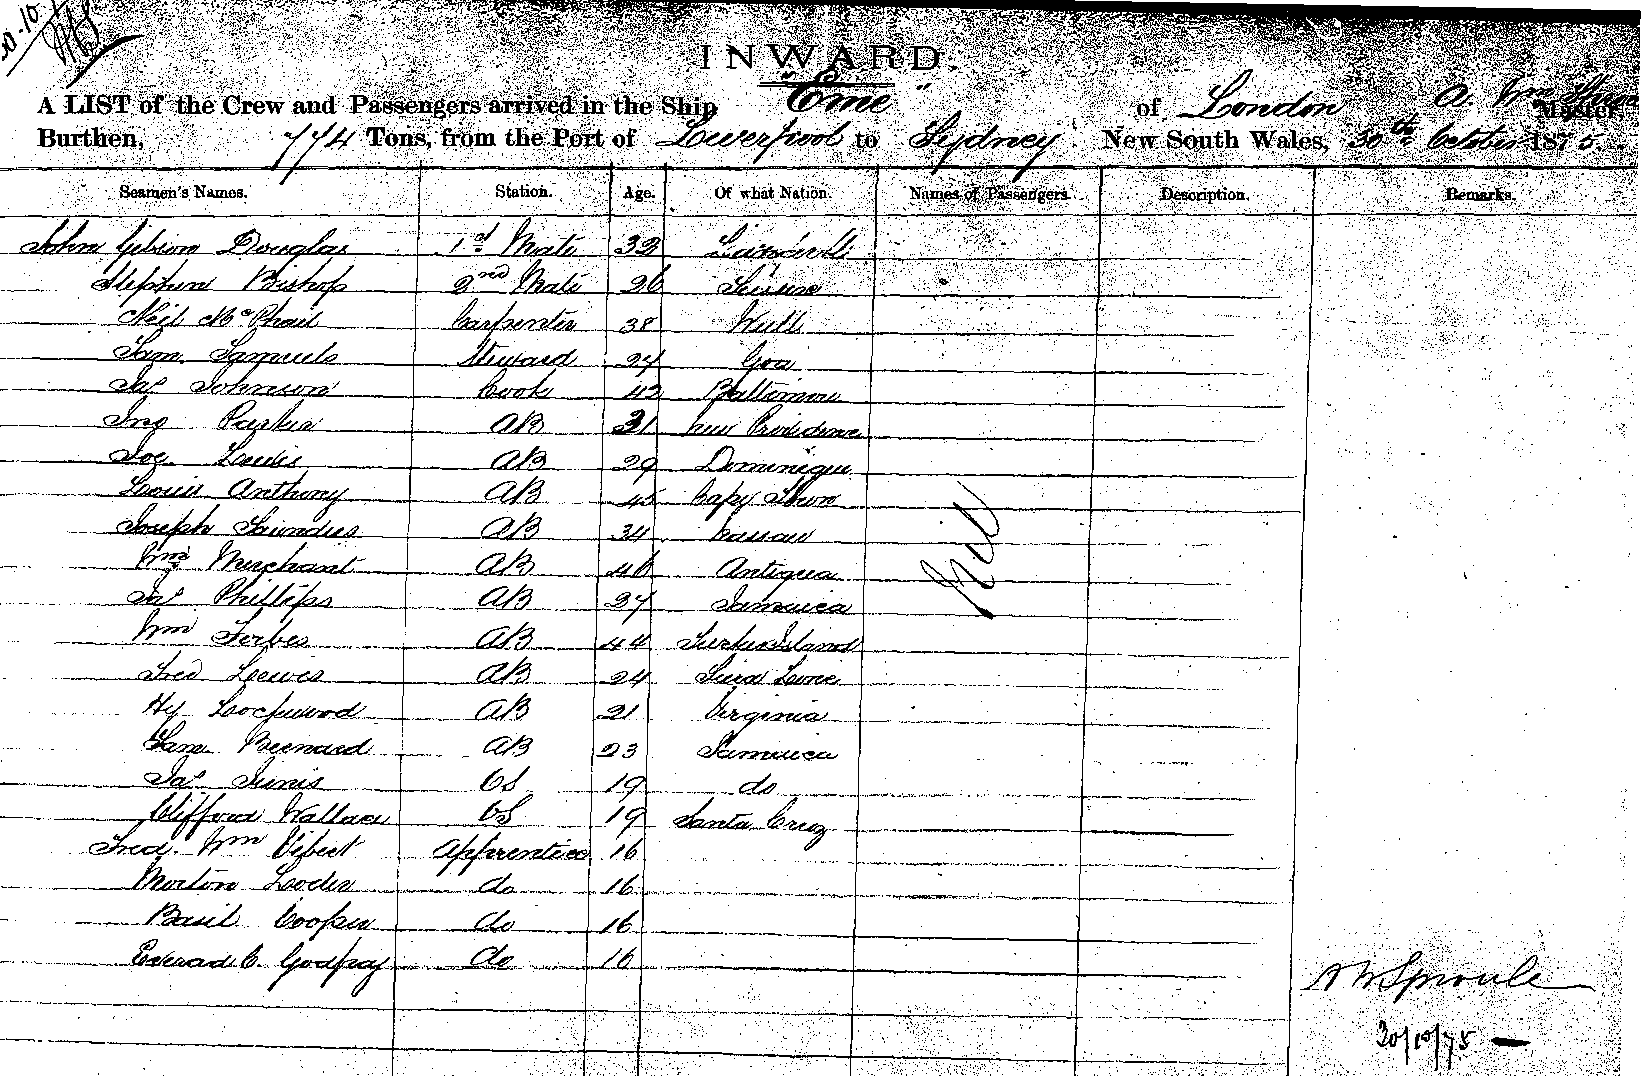 20.10
INWARD.
A LIST of the Crew and Passengers arrived in the Ship "Eme" of London A. Wm Master,
Burthen, 774 Tons, from the Port of Liverpool to Sydney New South Wales, 30th October 1875.
Seamen's Names. Station. Age. Of what Nation. Names of Passengers. Description. Remarks.
John Gibson Douglas 1st Mate 32
Stephen Bishop 2nd Mate 26
Neil McPhail Carpenter 38
Sam. Samuels Steward 24 Goa
Jas Johnson Cook 42 Baltimore
Jno Parker AB 31 New Providence
Joe Lewis AB 29 Dominique
Louis Anthony AB 45 Cape Town
Joseph Saunders AB 34 Nassau
Wm Merchant AB 46 Antigua
Jas Phillips AB 27 Jamaica
Wm Forbes AB 44 Turks Island
Fred Loewes AB 24 Siera Leone
Hy Lockwood AB 21 Virginia
Sam Bernard AB 23 Jamaica
Jas OS 19 do
Clifford Wallace OS 19 Santa Cruz
Fred. Wm Vibert Apprentice 16
Morton Loder do 16
Basil Cooper do 16
Everard C. Godfray do 16
Nil
A W Sproule
30/10/75